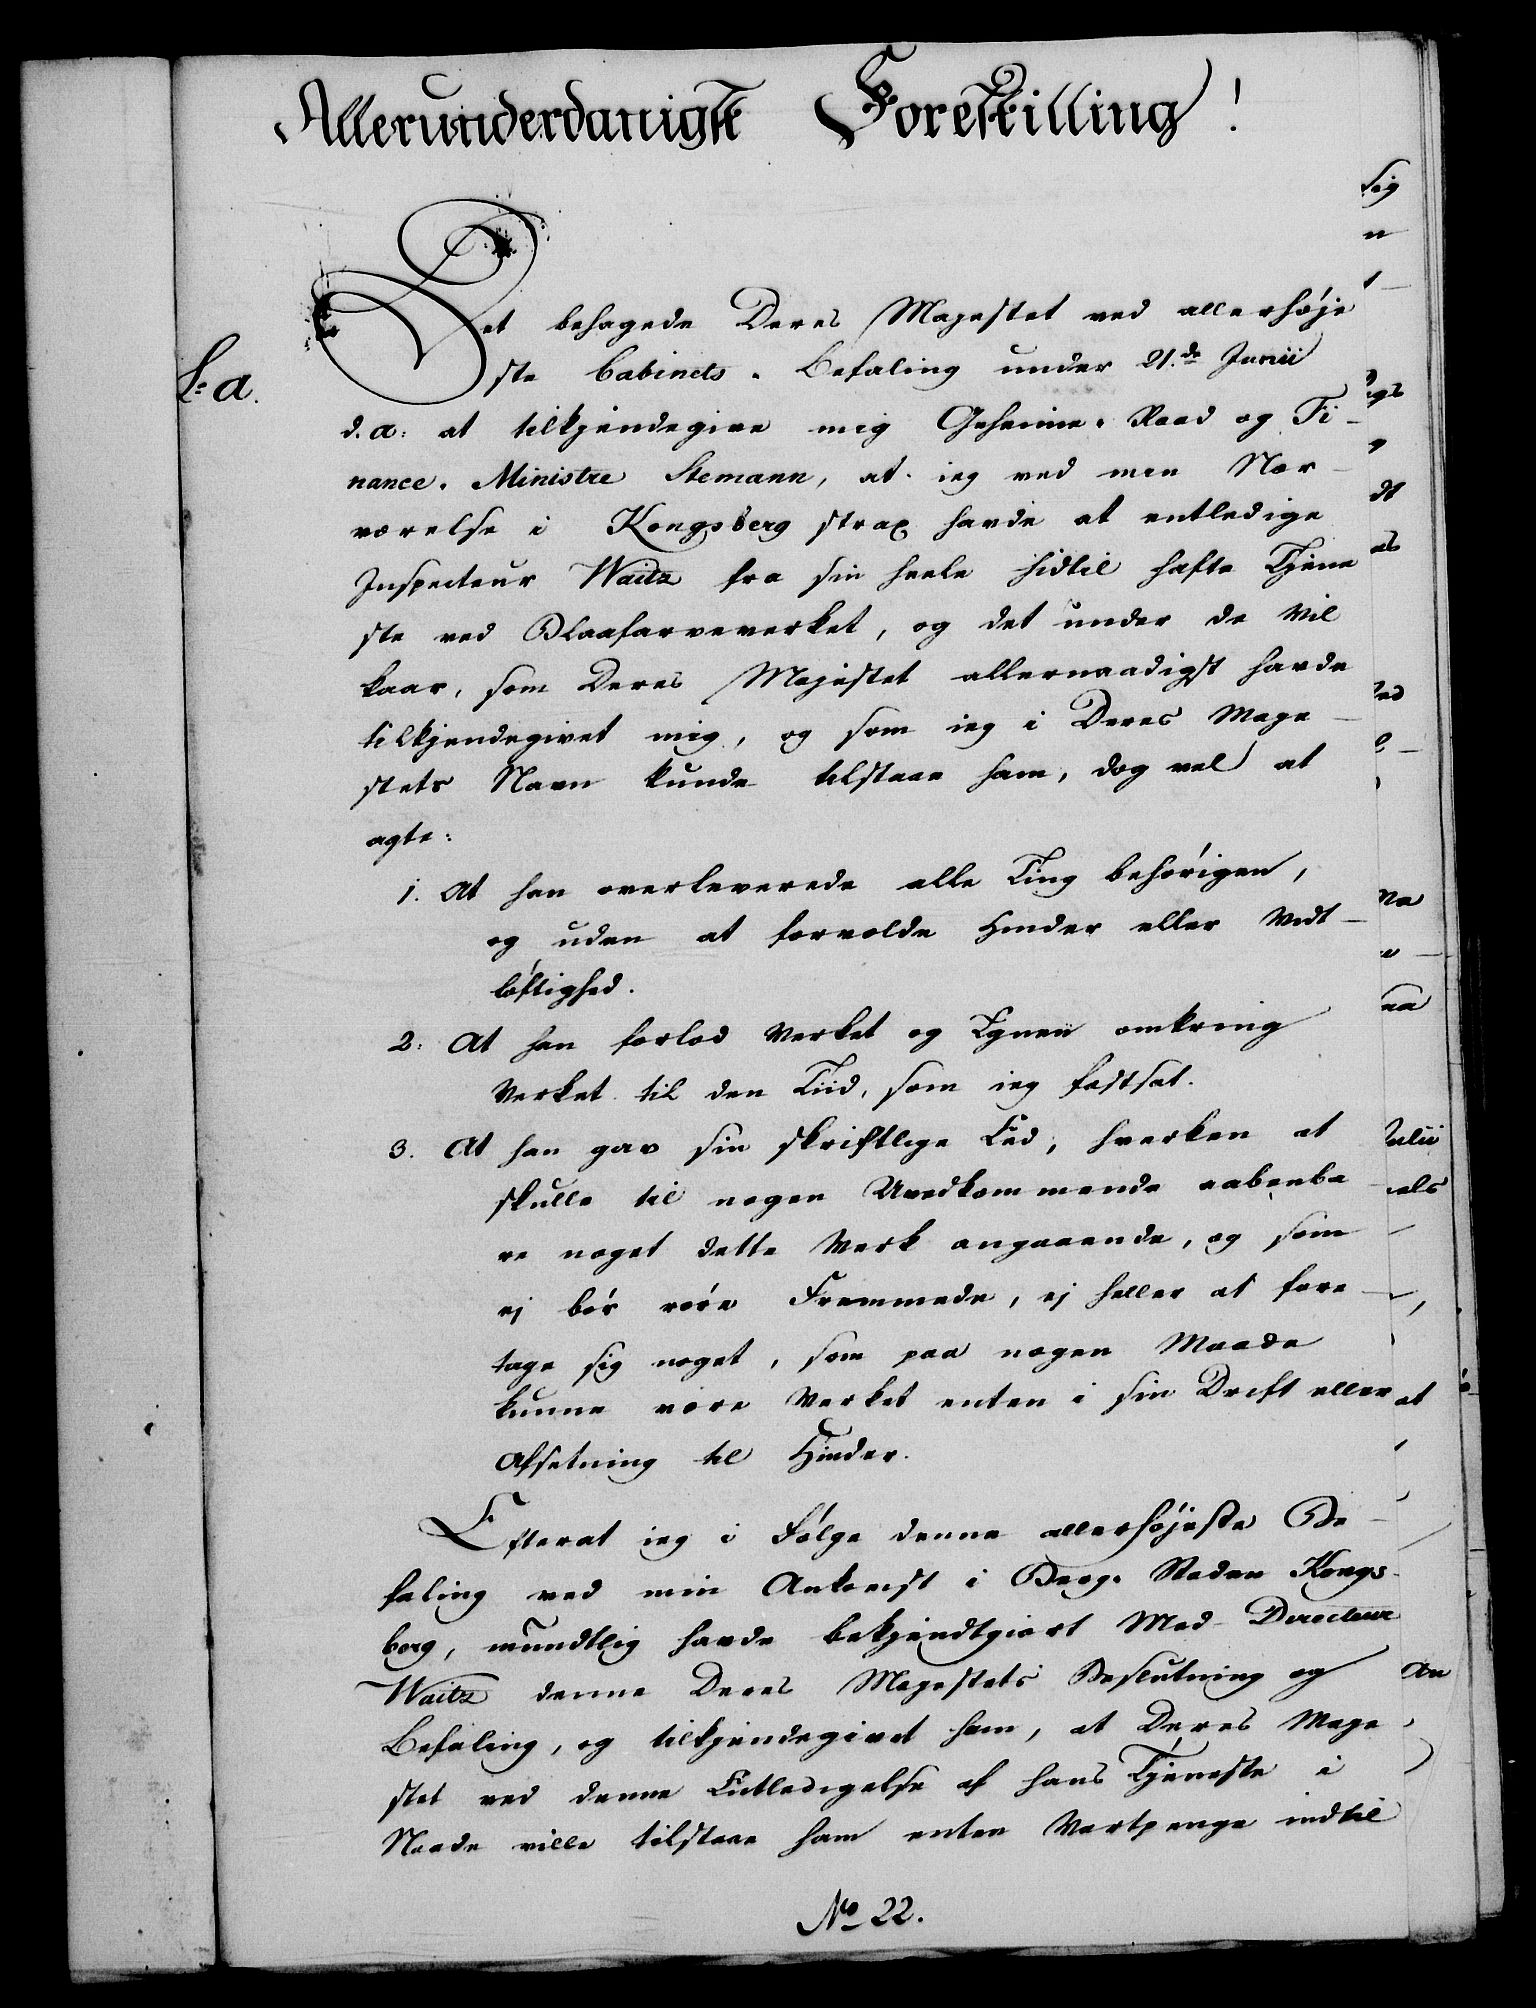 Allerunderdanigste Forestilling!
L: a.
Det behagede Deres Majestet ved allerhøje
ste Cabinets-Befaling under 21.de Junii
d. a: at tilkjendegive mig Geheime-Raad og Fi-
nance-Ministre Stemann, at ieg ved min Nær-
værelse i Kongsberg strax havde at entledige
Inspecteur Waitz fra sin heele hidtil hafte Tjene
ste ved Blaafarveverket, og det under de Vil
kaar, som Deres Majestet allernaadigst havde
tilkjendegivet mig, og som ieg i Deres Maje-
stets Navn kunde tilstaae ham, dog vel at
agte:
1. At han overleverede alle Ting behørigen,
og uden at forvolde Hinder eller Vidt-
løftighed.
2. At han forlod Verket og Egnen omkring
Verket til den Tiid, som ieg fastsat.
3. At han gav sin skriftlige Eed, hverken at
skulle til nogen Uvedkommende aabenba
re noget dette Verk angaaende, og som
ej bør røre Fremmede, ej heller at fore-
tage sig noget, som paa nogen Maade
kunne være Verket enten i sin Drift eller
Afsetning til Hinder.
Efterat ieg i Følge denne allerhøjeste Be-
faling ved min Ankomst i Berg-Staden Kongs-
berg, mundtlig havde bekjendtgiort Med-Directeur
Waitz denne Deres Majestets Beslutning og
Befaling, og tilkjendegivet ham, at Deres Maje-
stet ved denne Entledigelse af hans Tjeneste i
Naade ville tilstaae ham enten Vartpenge indtil
No 22.